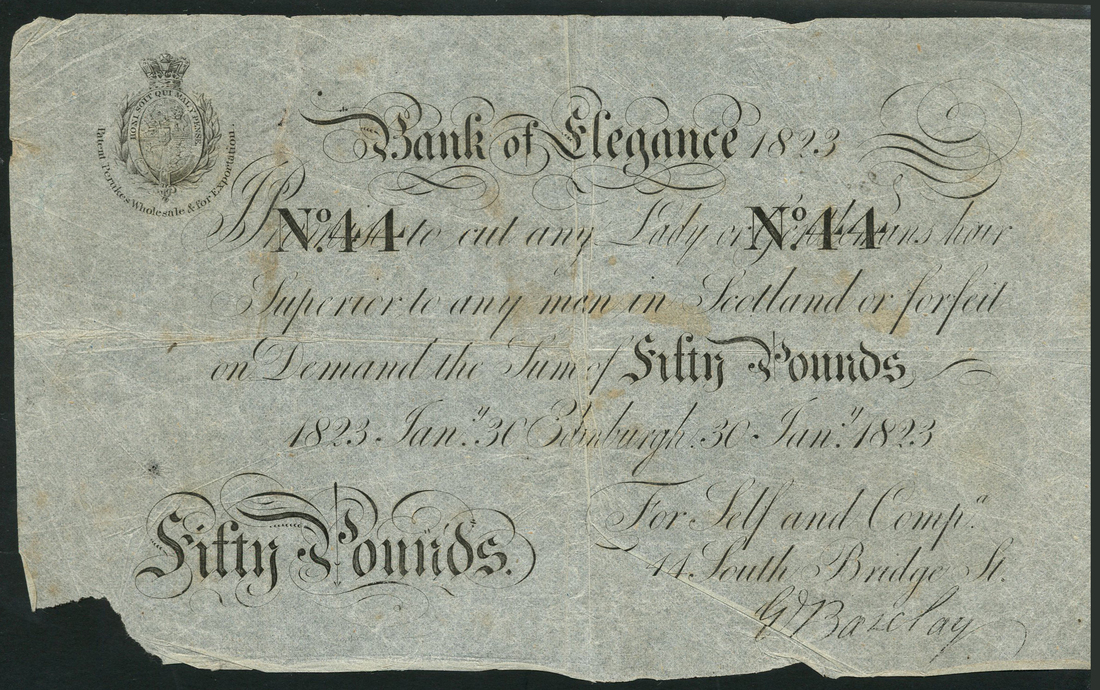 HONI SOIT QUI MAL Y PENSE
Patent Perukes Wholesale & for Exportation.
Bank of Elegance 1823
I Promise to cut any Lady or Gentlemans hair
No. 44 No. 44
Superior to any man in Scotland or forfeit
on Demand the Sum of Fifty Pounds
1823 Jany. 30 Edinburgh 30 Jany. 1823
Fifty Pounds.
For Self and Compa.
44 South Bridge St.
Barclay